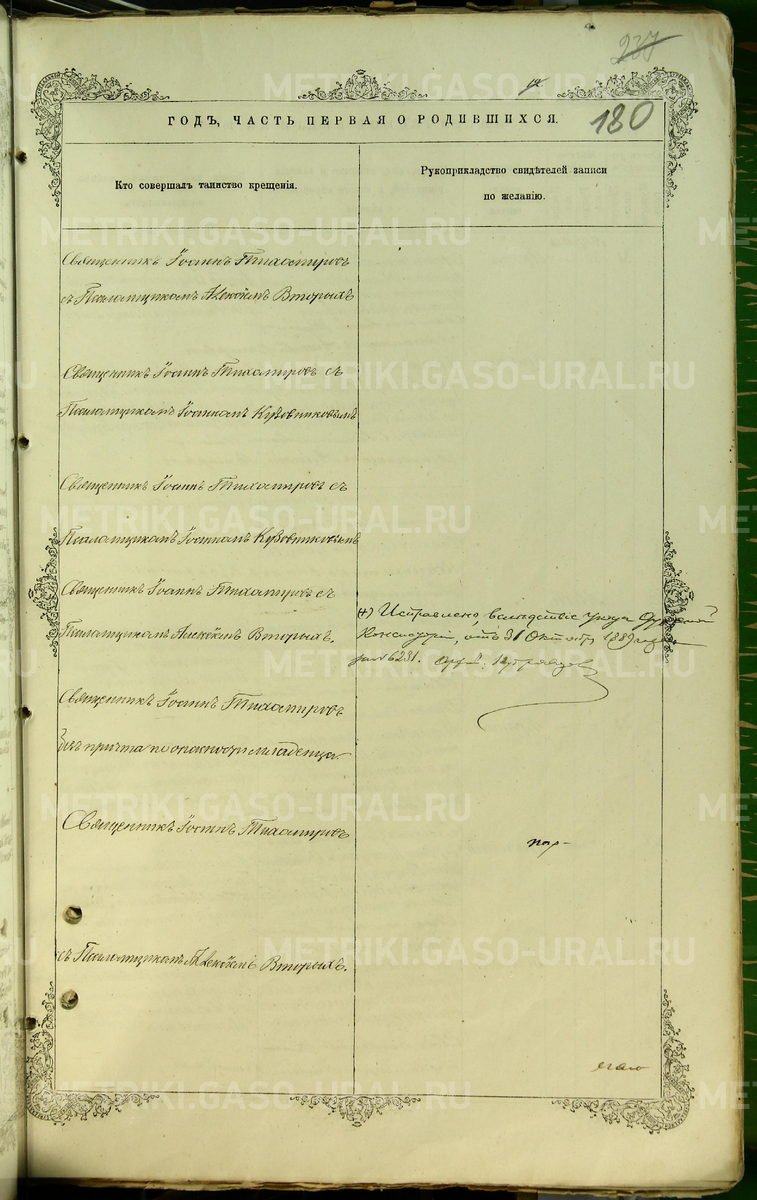 237
180
ГОДЪ, ЧАСТЬ ПЕРВАЯ О РОДИВШИХСЯ.
Кто совершалъ таинство крещенія.
Рукоприкладство свидѣтелей записи
по желанію.
Священникъ Іоаннъ Тихомировъ
съ Псаломщикомъ Алексѣемъ Вторыхъ
Священникъ Іоаннъ Тихомировъ съ
Псаломщикомъ Іоанномъ Кузовниковымъ
Священникъ Іоаннъ Тихомировъ съ
Псаломщикомъ Іоанномъ Кузовниковымъ
Священникъ Іоаннъ Тихомировъ съ
Псаломщикомъ Алексѣемъ Вторыхъ.
(+) Исправлено, вслѣдствіе указа
Консисторіи, отъ 31 Октября 1889 года
за № 6231.
Священникъ Іоаннъ Тихомировъ
безъ причта по опасности младенца.
Священникъ Іоаннъ Тихомировъ
съ Псаломщикомъ Алексѣемъ Вторыхъ.
METRIKI.GASO-URAL.RU